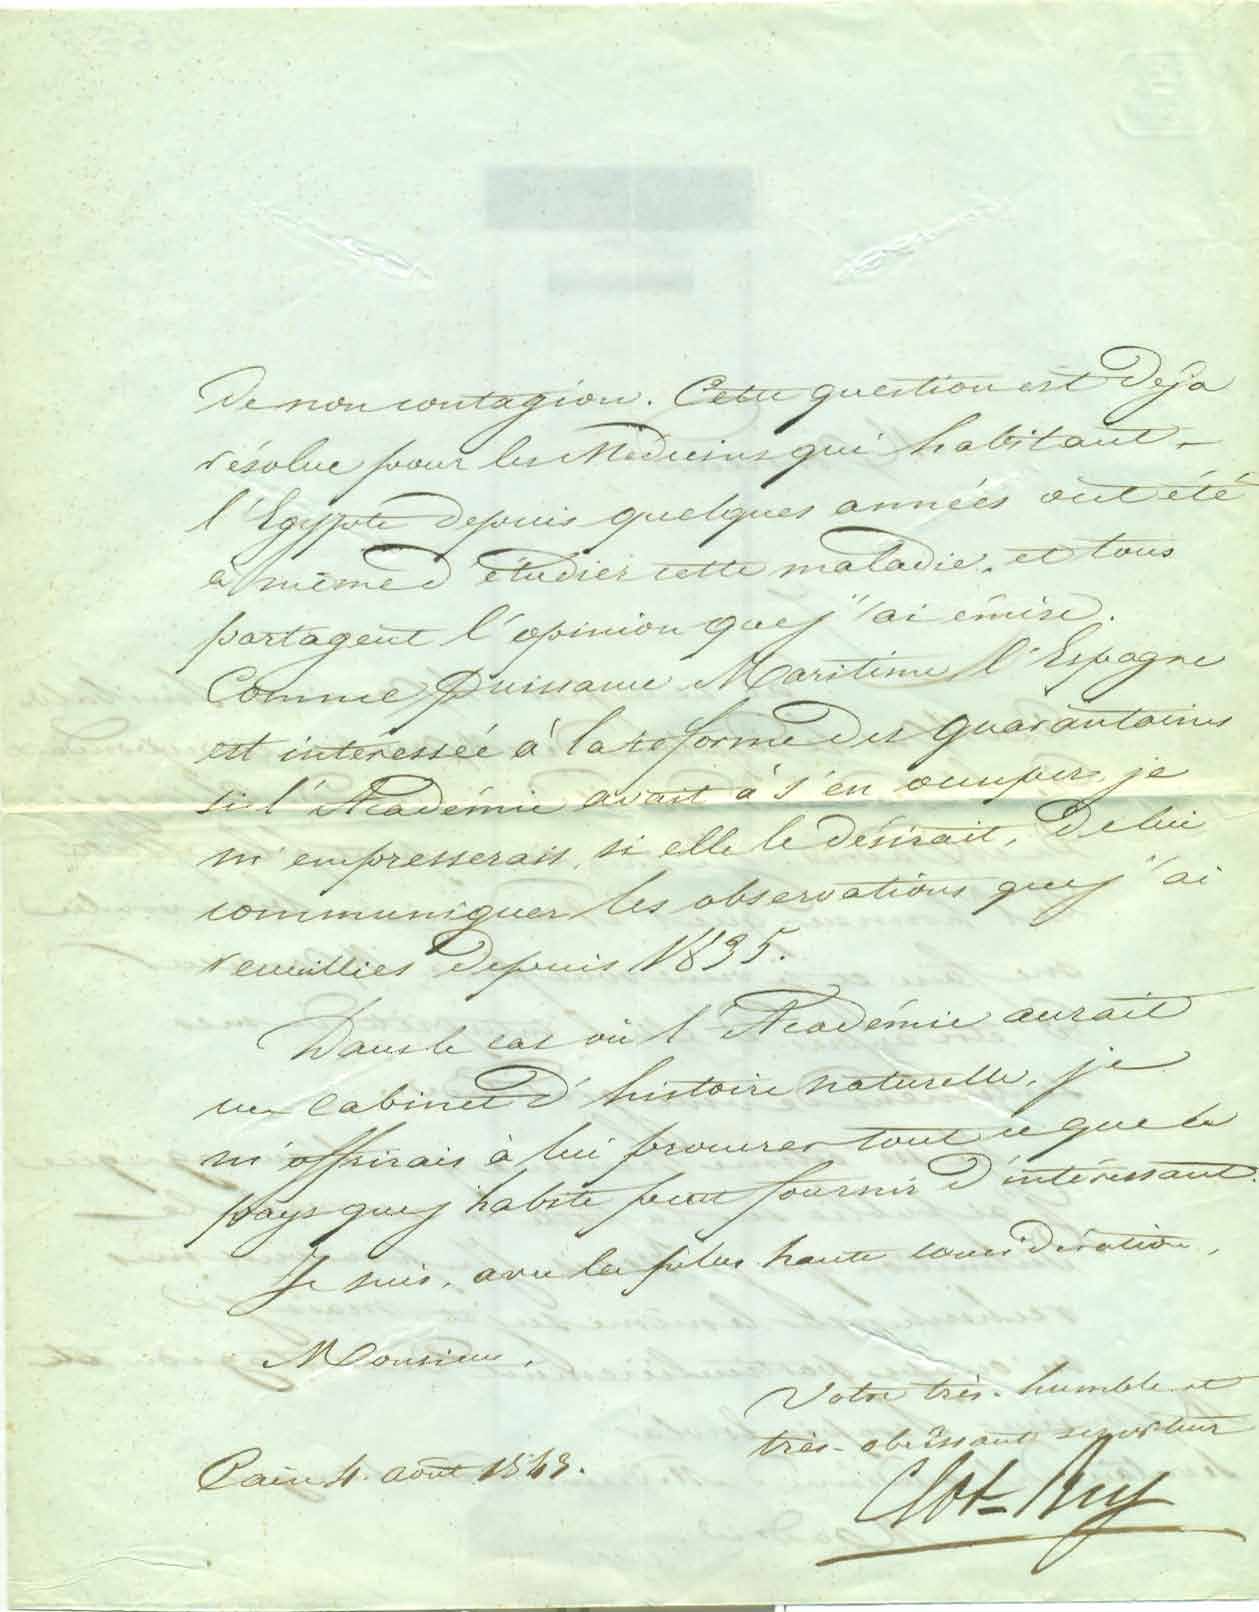 de non contagion. Cette question est déja
résolue pour les Médecins qui habitant
l'Egypte depuis quelques années ont été
à même d'étudier cette maladie, et tous
partagent l'opinion que j'ai émise.
Comme Puissance Maritime l'Espagne
est interessée à la reforme des quarantaines
si l'Académie avait à s'en occuper, je
m'empresserais, si elle le désirait, de lui
communiquer les observations que j'ai
recueillies depuis 1835.
Dans le cas où l'Académie aurait
un cabinet d'histoire naturelle, je
m'offrirais à lui procurer tout ce que le
pays que j'habite peut fournir d'intéressant.
Je suis, avec la plus haute considération,
Monsieur,
Votre très-humble et
très-obéissant serviteur
Caire 4. août 1843.
Clot-Bey